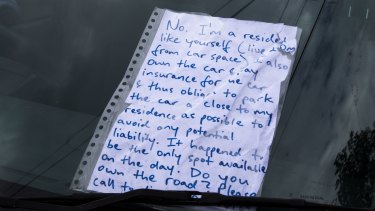 No. I'm a resident
like yourself (live
from car space) I also
own the car & pay
insurance for
& thus to park
the car close to my
residence as possible to
avoid any potential
liability. It happened to
be the only spot available
on the day. Do you
own the road? Please
call